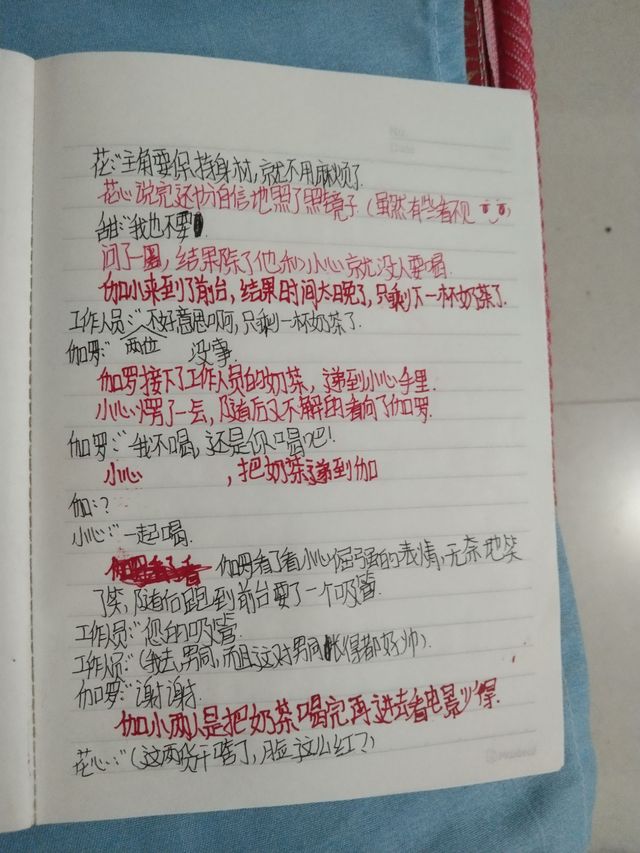 花:“主角要保持身材,就不用麻烦了.
花心说完还极自信地照了照镜子(虽然有些看不见
甜:“我也不要
问了一圈,结果除了他和小心就没人要喝.
伽小来到了前台,结果时间太晚了,只剩下一杯奶茶了.
工作人员:“不好意思啊,只剩一杯奶茶了.
伽罗:“两位 没事.
伽罗接下了工作人员的奶茶,递到小心手里.
小心愣了一会,随后又不解的看向了伽罗.
伽罗:“我不喝,还是你喝吧!
小心 ,把奶茶递到伽
伽:?
小心:“一起喝.
伽罗看了看小心倔强的表情,无奈地笑
了笑,随后跑到前台要了一个吸管.
工作人员:“您的吸管.
工作人员:“(我去,男同,而且这对男同长得都好帅).
伽罗:“谢谢.
伽小两人是把奶茶喝完再进去看电影少得.
花心:“(这两货干啥了,脸这么红?)